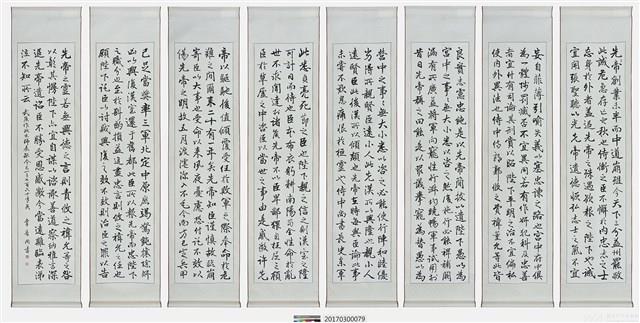 先帝創業未半而中道崩殂今天下三分益州罷敝
此誠危急存亡之秋也然侍衛之臣不懈於內忠志之士
忘身於外者蓋追先帝之殊遇欲報之陛下也誠
宜開張聖聽以光先帝遺德恢弘志士之氣不宜
妄自菲薄引喻失義以塞忠諫之路也宮中府中俱
為一體陟罰臧否不宜異同若有作奸犯科及忠善
者宜付有司論其刑賞以昭陛下平明之治不宜偏私
使內外異法也侍中侍郎郭攸之費禕董允等此皆
良實志慮忠純是以先帝簡拔以遺陛下愚以為
宮中之事事無大小悉以咨之然後施行必能裨補闕
漏有所廣益將軍向寵性行淑均曉暢軍事試用於
昔日先帝稱之曰能是以眾議舉寵為督愚以為
營中之事事無大小悉以咨之必能使行陣和睦優
劣得所親賢臣遠小人此先漢所以興隆也親小人
遠賢臣此後漢所以傾頹也先帝在時每與臣論此事
未嘗不歎息痛恨於桓靈也侍中尚書長史參軍
此悉貞亮死節之臣也陛下親之信之則漢室之隆
可計日而待也臣本布衣躬耕南陽苟全性命於亂
世不求聞達於諸侯先帝不以臣卑鄙猥自枉屈三顧
臣於草廬之中咨臣以當世之事由是感激許先
帝以驅馳後值傾覆受任於敗軍之際奉命於危
難之間爾來二十有一年矣先帝知臣謹慎故臨崩
寄臣以大事也受命以來夙夜憂慮恐付託不效以
傷先帝之明故五月渡瀘深入不毛今南方已定兵甲
已足當獎率三軍北定中原庶竭駑鈍攘除姦
凶以興復漢室還于舊都此臣所以報先帝而忠陛下
之職分也至於斟酌損益進盡忠言則攸之禕允之任也
願陛下託臣以討賊興復之效不效則治臣之罪以告
先帝之靈若無興德之言則責攸之禕允等之咎
以彰其慢陛下亦宜自謀以諮諏善道察納雅言深
追先帝遺詔臣不勝受恩感激今當遠離臨表涕
泣不知所云
20170300079